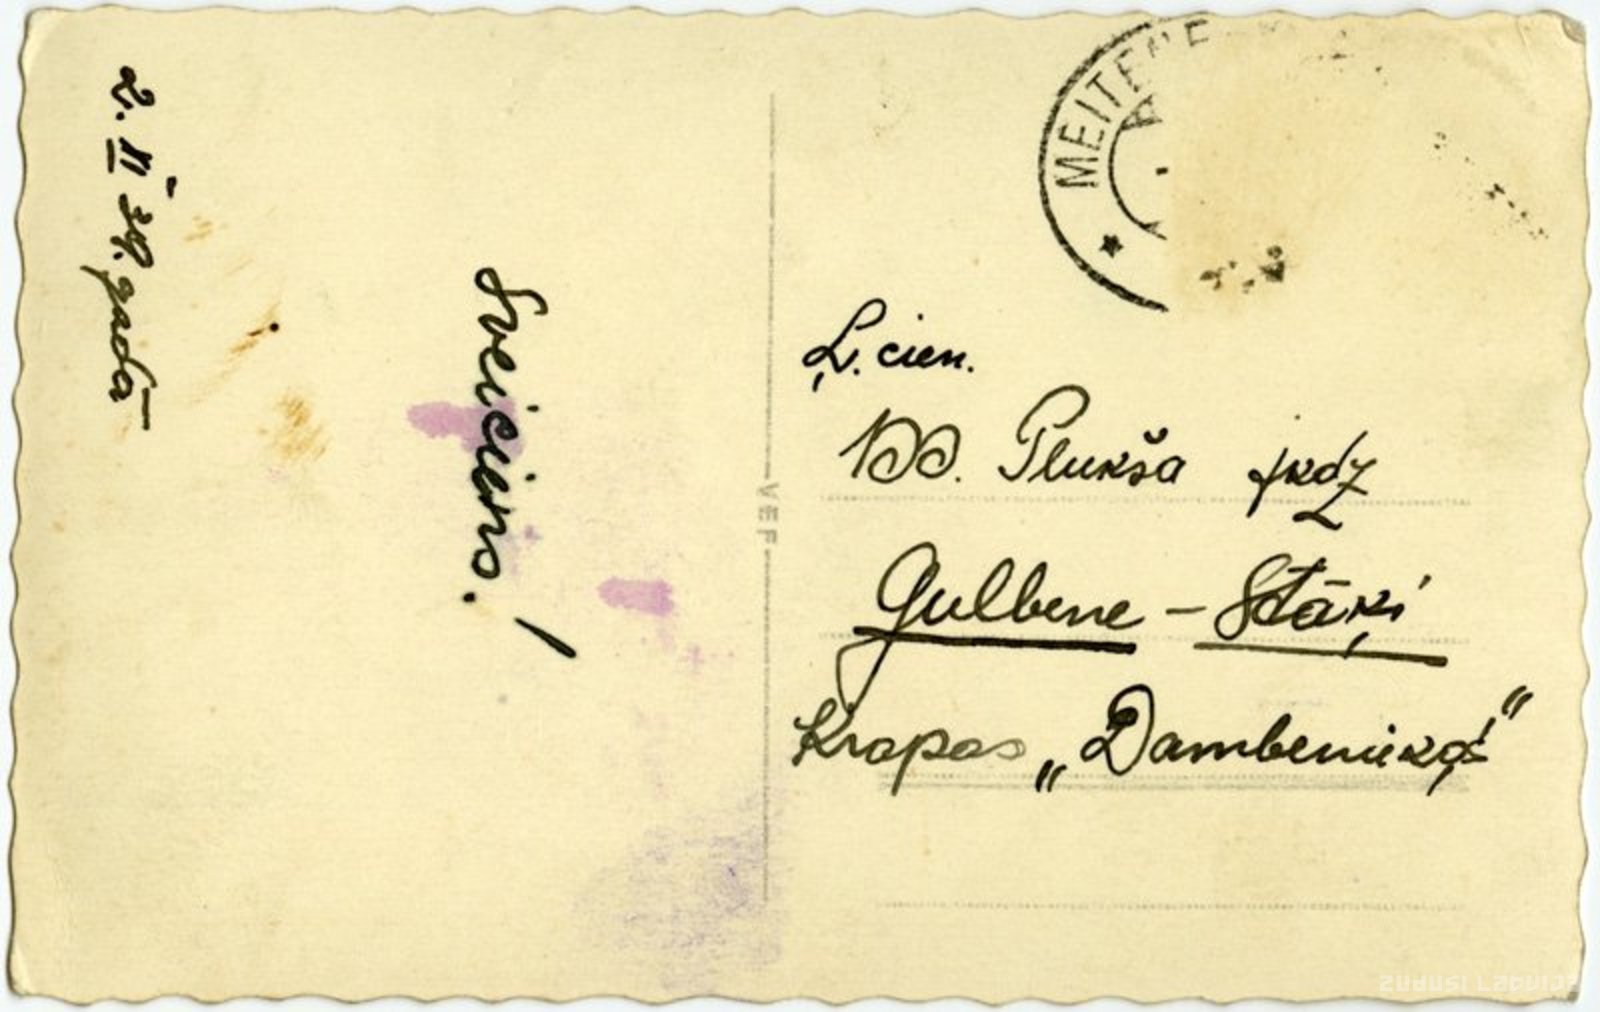 2. III 39. gadā
Sveiciens!
VEF
MEITENE
Ļ. cien.
Plukša jkdz
Gulbene - Stāķi
Kropas „Dambenieķos"
ZUDUSI LATVIJA